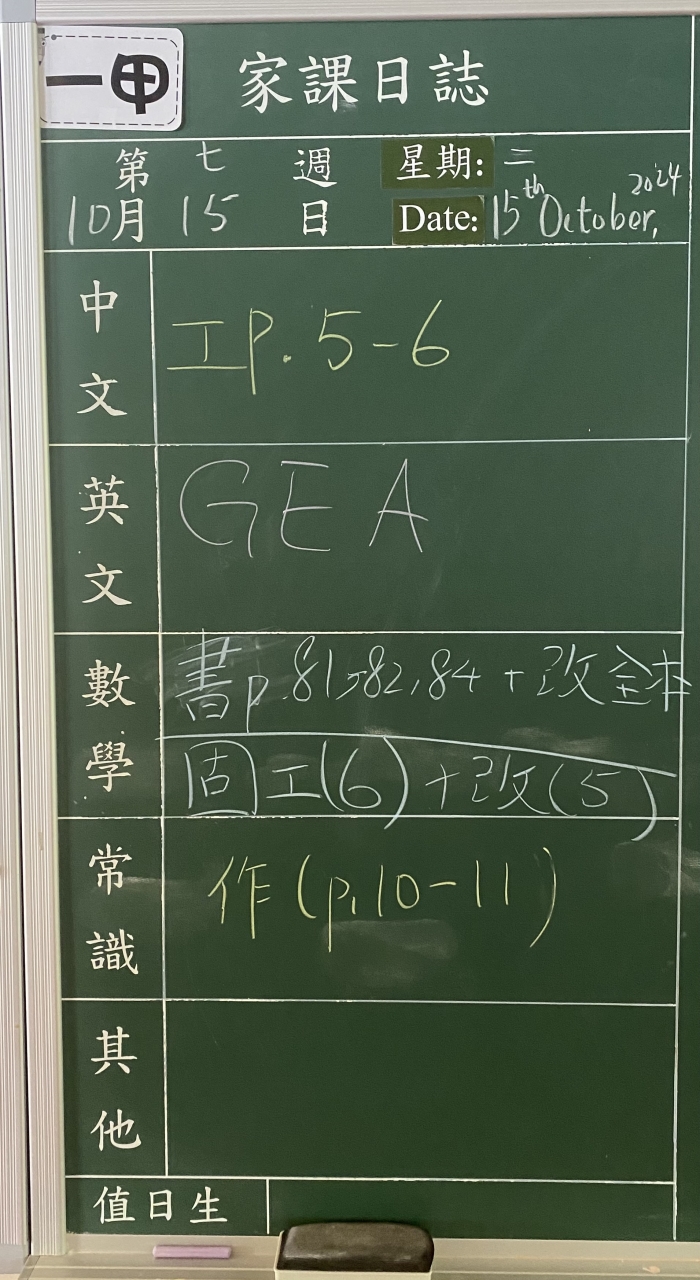 一甲 家課日誌
第 七 週 星期: 三
10月 15 日 Date: 15th October, 2024
中文 工P. 5-6
英文 GEA
數學 書p.81,82,84 + 改全本
固工(6) + 改(5)
常識 作(p.10-11)
其他
值日生